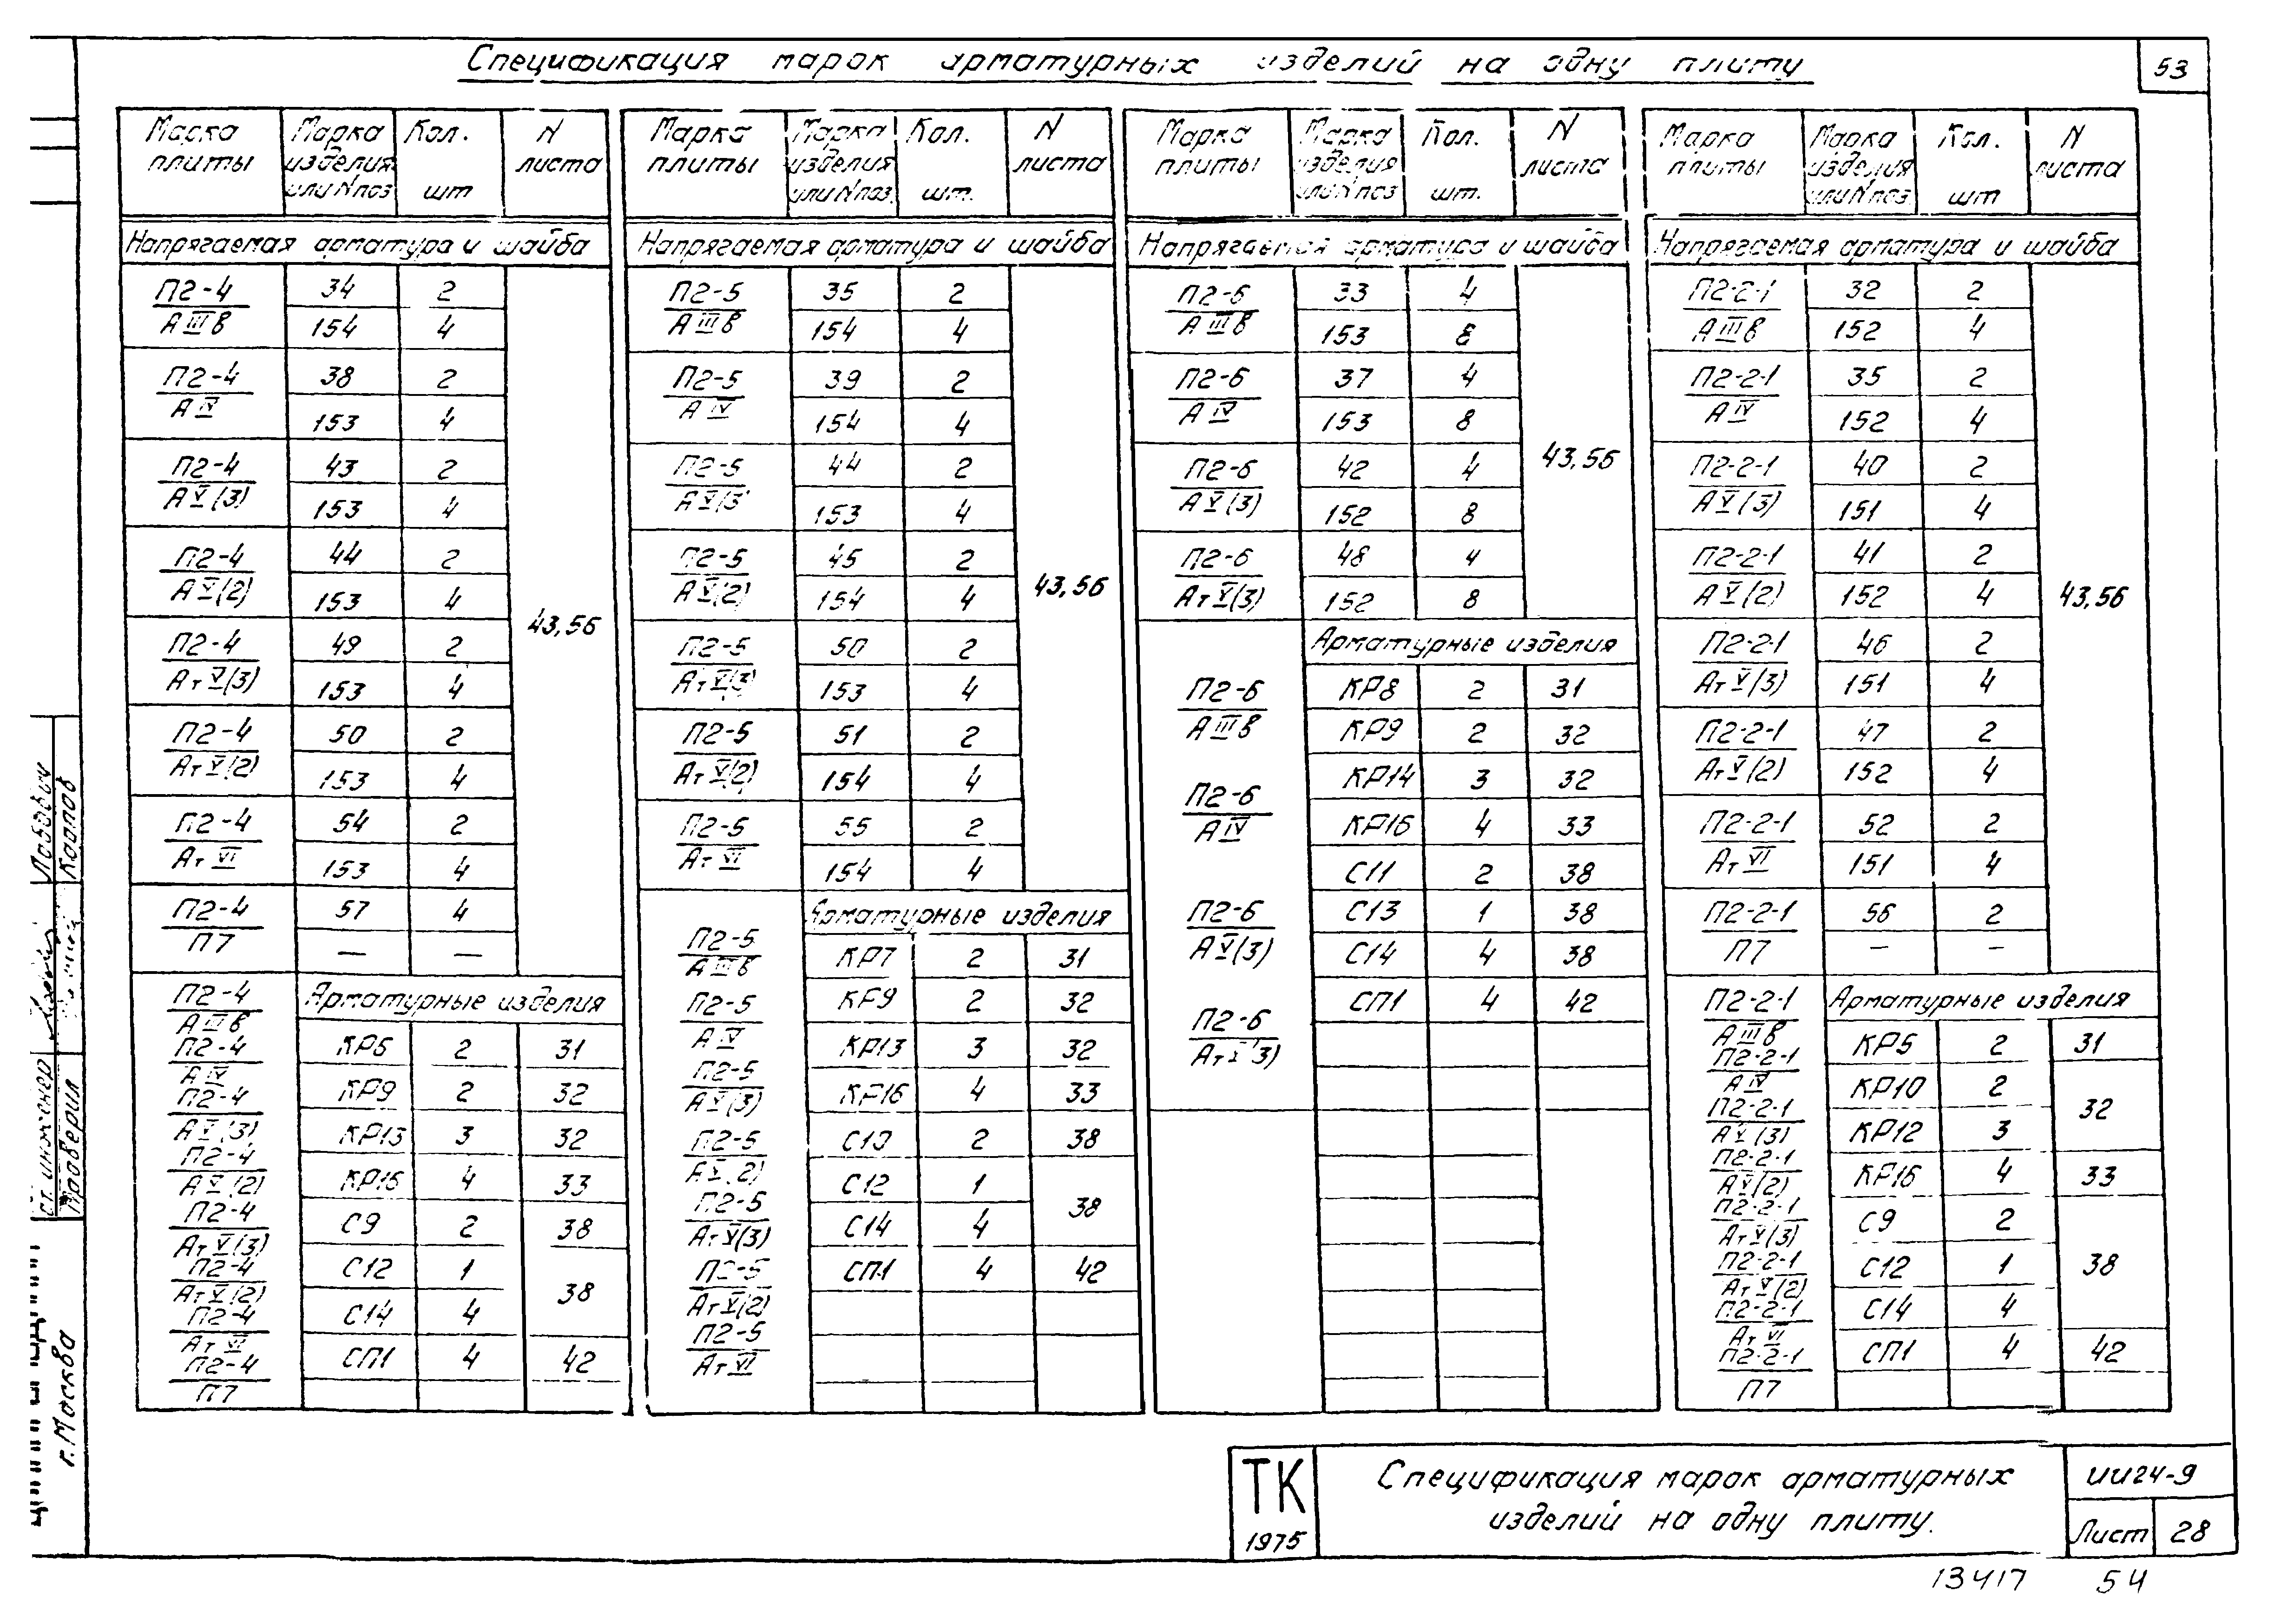 Спецификация марок арматурных изделий на одну плиту
53
Марка плиты | Марка изделия или N поз | Кол. шт | N листа
Напрягаемая арматура и шайба
П2-4/АIIIв | 34 | 2 | 43,56
154 | 4
П2-4/АIV | 38 | 2
153 | 4
П2-4/АV(3) | 43 | 2
153 | 4
П2-4/АV(2) | 44 | 2
153 | 4
П2-4/АтV(3) | 49 | 2
153 | 4
П2-4/АтV(2) | 50 | 2
153 | 4
П2-4/АтVI | 54 | 2
153 | 4
П2-4/П7 | 57 | 4
— | —
Арматурные изделия
П2-4/АIIIв
П2-4/АIV
П2-4/АV(3)
П2-4/АV(2)
П2-4/АтV(3)
П2-4/АтV(2)
П2-4/АтVI
П2-4/П7
КР6 | 2 | 31
КР9 | 2 | 32
КР13 | 3 | 32
КР16 | 4 | 33
С9 | 2 | 38
С12 | 1 | 38
С14 | 4
СП1 | 4 | 42
Марка плиты | Марка изделия или N поз | Кол. шт. | N листа
Напрягаемая арматура и шайба
П2-5/АIIIв | 35 | 2 | 43,56
154 | 4
П2-5/АIV | 39 | 2
154 | 4
П2-5/АV(3 | 44 | 2
153 | 4
П2-5/АV(2) | 45 | 2
154 | 4
П2-5/АтV(3) | 50 | 2
153 | 4
П2-5/АтV(2) | 51 | 2
154 | 4
П2-5/АтVI | 55 | 2
154 | 4
Арматурные изделия
П2-5/АIIIв
П2-5/АIV
П2-5/АV(3)
П2-5/АV(2)
П2-5/АтV(3)
П2-5/АтV(2)
П2-5/АтVI
КР7 | 2 | 31
КР9 | 2 | 32
КР13 | 3 | 32
КР16 | 4 | 33
С10 | 2 | 38
С12 | 1 | 38
С14 | 4
СП1 | 4 | 42
Марка плиты | Марка изделия или N поз | Кол. шт. | N листа
Напрягаемая арматура и шайба
П2-6/АIIIв | 33 | 4 | 43,56
153 | 8
П2-6/АIV | 37 | 4
153 | 8
П2-6/АV(3) | 42 | 4
152 | 8
П2-6/АтV(3) | 48 | 4
152 | 8
Арматурные изделия
П2-6/АIIIв
П2-6/АIV
П2-6/АV(3)
П2-6/АтV(3)
КР8 | 2 | 31
КР9 | 2 | 32
КР14 | 3 | 32
КР16 | 4 | 33
С11 | 2 | 38
С13 | 1 | 38
С14 | 4 | 38
СП1 | 4 | 42
Марка плиты | Марка изделия или N поз | Кол. шт | N листа
Напрягаемая арматура и шайба
П2-2-1/АIIIв | 32 | 2 | 43,56
152 | 4
П2-2-1/АIV | 35 | 2
152 | 4
П2-2-1/АV(3) | 40 | 2
151 | 4
П2-2-1/АV(2) | 41 | 2
152 | 4
П2-2-1/АтV(3) | 46 | 2
151 | 4
П2-2-1/АтV(2) | 47 | 2
152 | 4
П2-2-1/АтVI | 52 | 2
151 | 4
П2-2-1/П7 | 56 | 2
— | —
Арматурные изделия
П2-2-1/АIIIв
П2-2-1/АIV
П2-2-1/АV(3)
П2-2-1/АV(2)
П2-2-1/АтV(3)
П2-2-1/АтV(2)
П2-2-1/АтVI
П2-2-1/П7
КР5 | 2 | 31
КР10 | 2 | 32
КР12 | 3
КР16 | 4 | 33
С9 | 2 | 38
С12 | 1
С14 | 4
СП1 | 4 | 42
Ст. инженер
Проверил
Карпов
г. Москва
ТК
1975
Спецификация марок арматурных
изделий на одну плиту.
ИИ24-9
Лист 28
13417 54